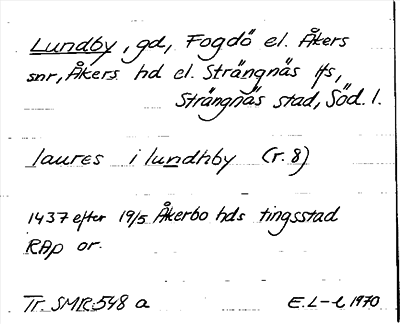 Lundby, gd, Fogdö el. Åkers
snr, Åkers hd el. Strängnäs lfs,
Strängnäs stad, Söd. l.
laures i lundhby (r. 8)
1437 efter 19/5 Åkerbo hds tingsstad
RAp or.
Tr. SMR:548 a E.L-l 1970